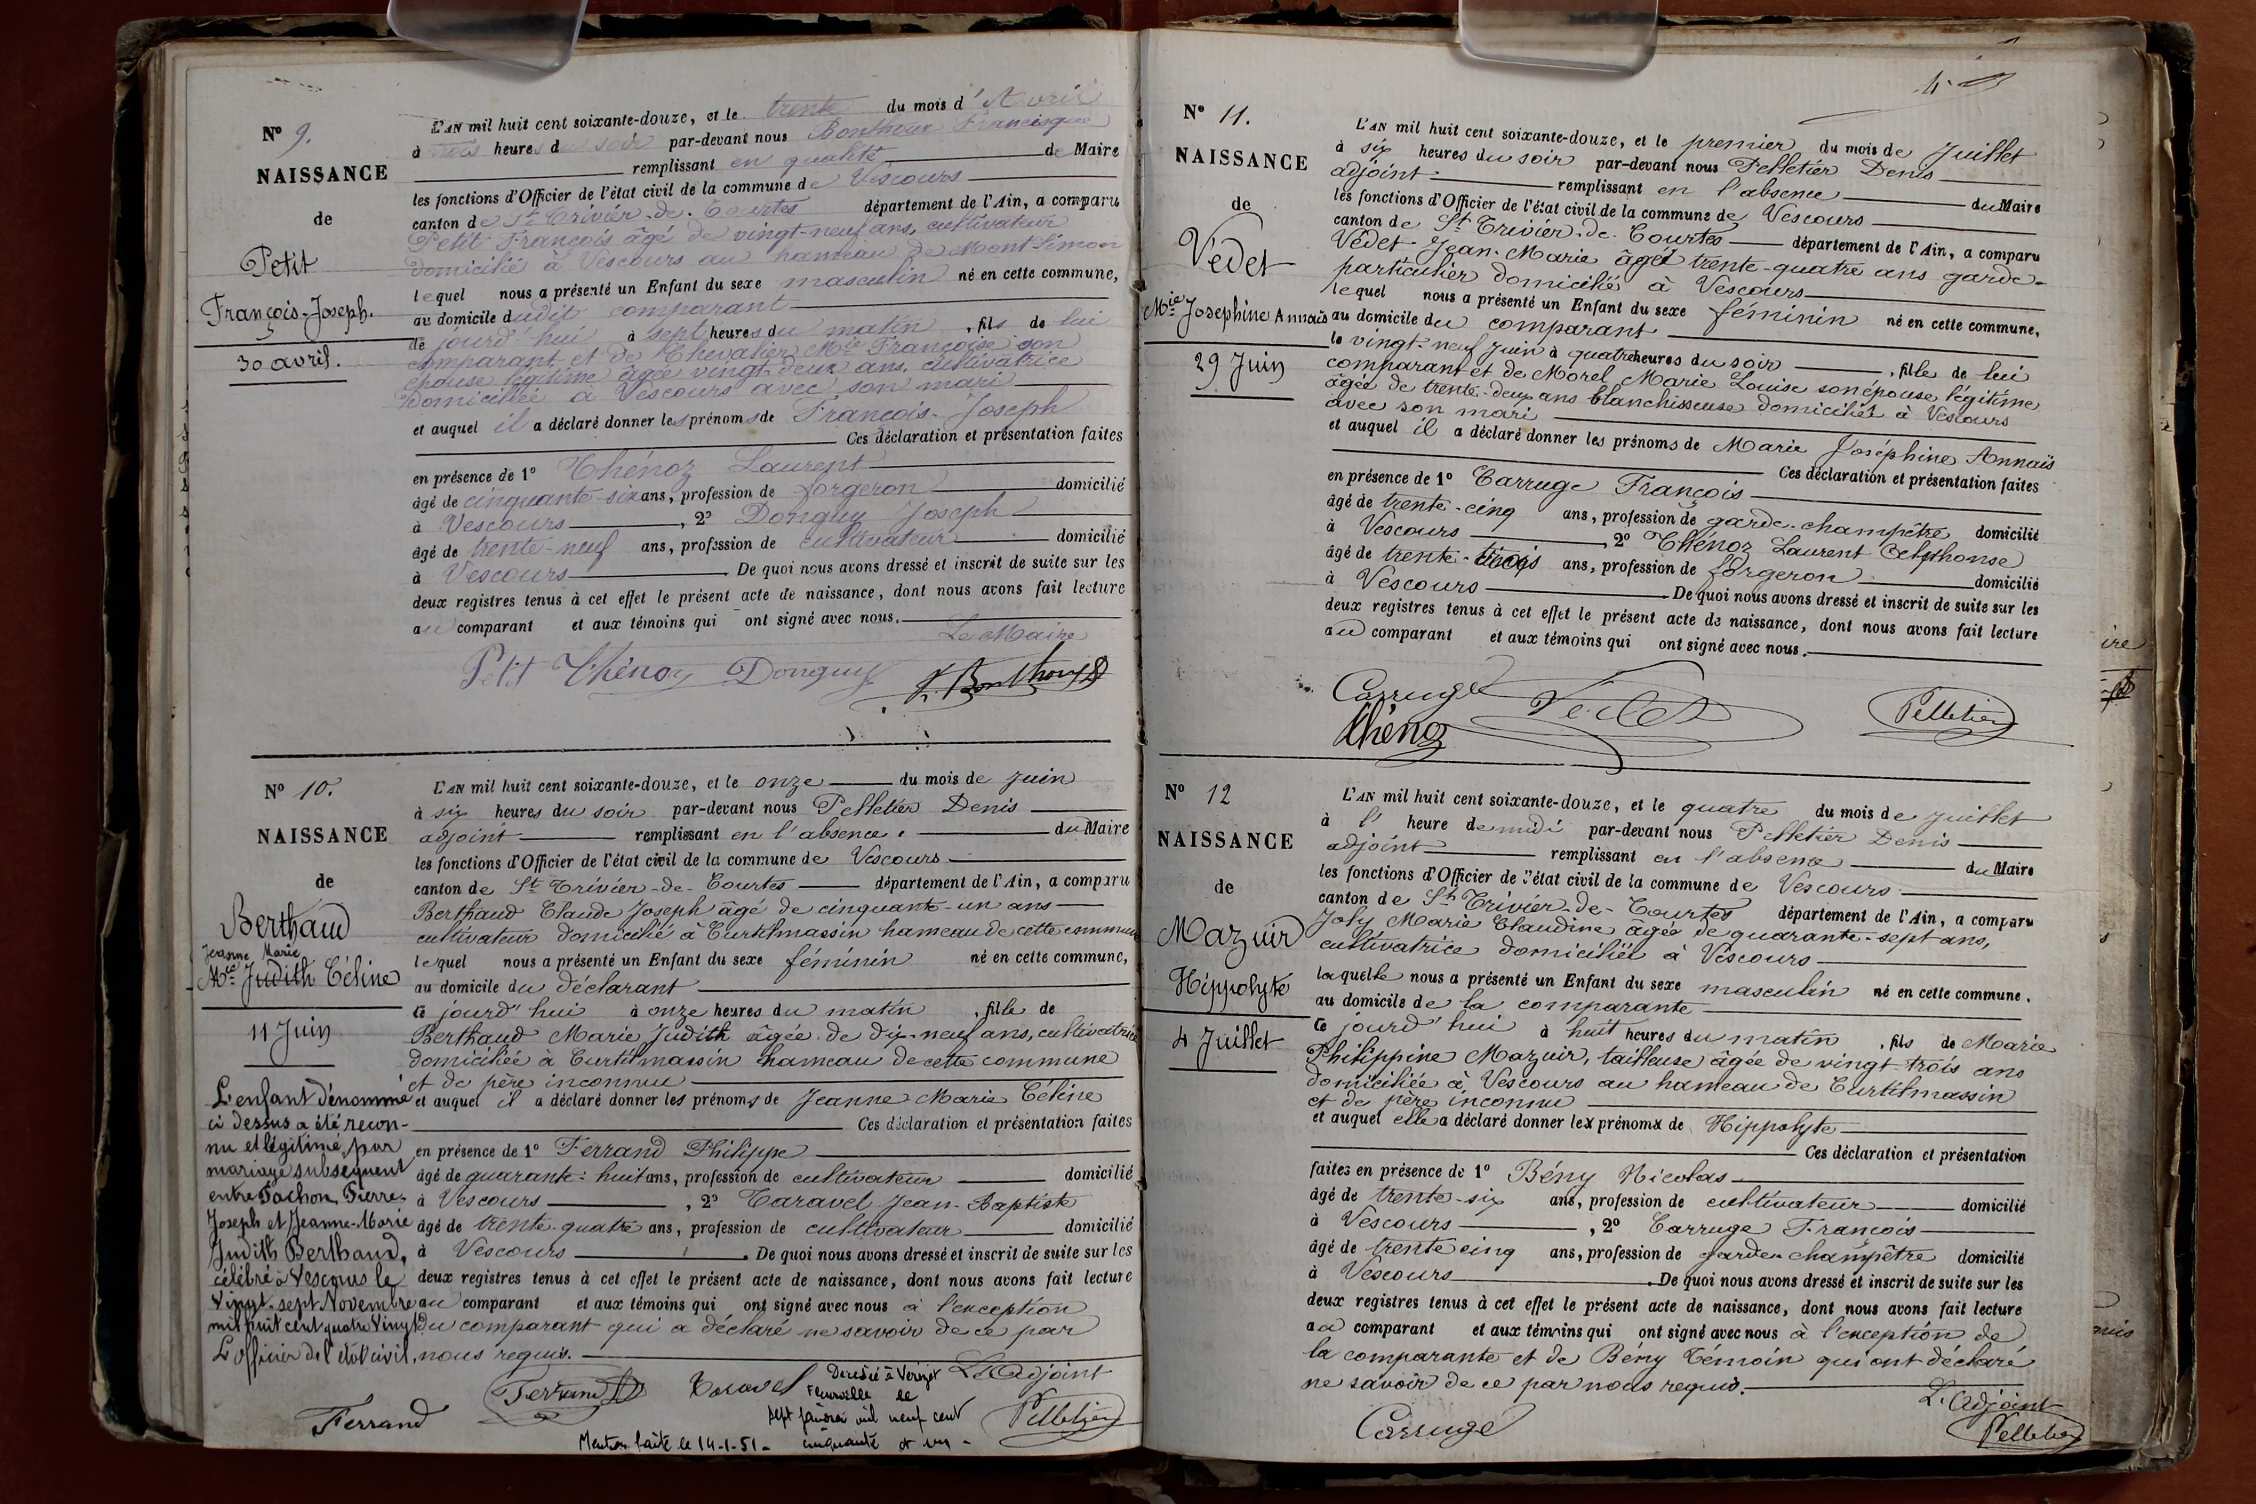 Nº 9.
NAISSANCE
de
Petit
François-Joseph.
30 avril.
L'AN mil huit cent soixante-douze, et le trente du mois d'Avril
à trois heures du soir par-devant nous Bonthoux Francisque
remplissant en qualité de Maire
les fonctions d'Officier de l'état civil de la commune de Vescours
canton de St Trivier-de-Courtes département de l'Ain, a comparu
Petit François âgé de vingt-neuf ans, cultivateur
domicilié à Vescours au hameau de Mont Simon
lequel nous a présenté un Enfant du sexe masculin né en cette commune,
au domicile dudit comparant
de jourd'hui à sept heures du matin, fils de lui
comparant et de Chevalier Mie Françoise son
épouse légitime âgée vingt-deux ans, cultivatrice
domiciliée à Vescours avec son mari
et auquel il a déclaré donner les prénoms de François-Joseph
Ces déclaration et présentation faites
en présence de 1º Thénoz Laurent
âgé de cinquante-six ans, profession de forgeron domicilié
à Vescours, 2º Donguy Joseph
âgé de trente-neuf ans, profession de cultivateur domicilié
à Vescours. De quoi nous avons dressé et inscrit de suite sur les
deux registres tenus à cet effet le présent acte de naissance, dont nous avons fait lecture
au comparant et aux témoins qui ont signé avec nous.
Le Maire
Petit Thénoz Donguy F. Bonthoux
Nº 10.
NAISSANCE
de
Berthaud
Jeanne Marie
Mie Judith Céline
11 Juin
L'enfant dénommé
ci dessus a été recon-
nu et légitimé par
mariage subsequent
entre Pachon Pierre-
Joseph et Jeanne-Marie
Judith Berthaud,
célébré à Vescours le
vingt-sept Novembre
mil huit cent quatre vingt
L'officier de l'état civil,
L'AN mil huit cent soixante-douze, et le onze du mois de juin
à six heures du soir par-devant nous Pelletier Denis
adjoint remplissant en l'absence du Maire
les fonctions d'Officier de l'état civil de la commune de Vescours
canton de St Trivier-de-Courtes département de l'Ain, a comparu
Berthaud Claude Joseph âgé de cinquante-un ans
cultivateur domicilié à Curtilmassin hameau de cette commune
lequel nous a présenté un Enfant du sexe féminin né en cette commune,
au domicile du déclarant
ce jourd'hui à onze heures du matin, fille de
Berthaud Marie Judith âgée de dix-neuf ans, cultivatrice
domiciliée à Curtilmassin hameau de cette commune
et de père inconnu
et auquel il a déclaré donner les prénoms de Jeanne Marie Céline
Ces déclaration et présentation faites
en présence de 1º Ferrand Philippe
âgé de quarante-huit ans, profession de cultivateur domicilié
à Vescours, 2º Caravel Jean-Baptiste
âgé de trente-quatre ans, profession de cultivateur domicilié
à Vescours. De quoi nous avons dressé et inscrit de suite sur les
deux registres tenus à cet effet le présent acte de naissance, dont nous avons fait lecture
au comparant et aux témoins qui ont signé avec nous à l'exception
du comparant qui a déclaré ne savoir de ce par
nous requis.
L'Adjoint
Ferrand Caravel Pelletier
Ferrand
Décédée à Vérizet
Fleurville le
sept janvier mil neuf cent
cinquante et un -
Mention faite le 14-1-51-
4
Nº 11.
NAISSANCE
de
Védet
Mie Josephine Annaïs
29 Juin
L'AN mil huit cent soixante-douze, et le premier du mois de Juillet
à six heures du soir par-devant nous Pelletier Denis
adjoint remplissant en l'absence du Maire
les fonctions d'Officier de l'état civil de la commune de Vescours
canton de St Trivier-de-Courtes département de l'Ain, a comparu
Védet Jean-Marie âgé trente-quatre ans garde-
particulier domicilié à Vescours
lequel nous a présenté un Enfant du sexe féminin né en cette commune,
au domicile du comparant
le vingt-neuf Juin à quatre heures du soir, fille de lui
comparant et de Morel Marie Louise son épouse légitime
âgée de trente-deux ans blanchisseuse domiciliée à Vescours
avec son mari
et auquel il a déclaré donner les prénoms de Marie Joséphine Annaïs
Ces déclaration et présentation faites
en présence de 1º Carruge François
âgé de trente-cinq ans, profession de garde-champêtre domicilié
à Vescours, 2º Thénoz Laurent Alphonse
âgé de trente-trois ans, profession de forgeron domicilié
à Vescours. De quoi nous avons dressé et inscrit de suite sur les
deux registres tenus à cet effet le présent acte de naissance, dont nous avons fait lecture
au comparant et aux témoins qui ont signé avec nous.
Carruge Védet Pelletier
Thénoz
Nº 12
NAISSANCE
de
Mazuir
Hippolyte
4 Juillet
L'AN mil huit cent soixante-douze, et le quatre du mois de Juillet
à l'heure de midi par-devant nous Pelletier Denis
adjoint remplissant en l'absence du Maire
les fonctions d'Officier de l'état civil de la commune de Vescours
canton de St Trivier-de-Courtes département de l'Ain, a comparu
Joly Marie Claudine âgée de quarante-sept ans,
cultivatrice domiciliée à Vescours
laquelle nous a présenté un Enfant du sexe masculin né en cette commune,
au domicile de la comparante
ce jourd'hui à huit heures du matin, fils de Marie
Philippine Mazuir, tailleuse âgée de vingt-trois ans
domiciliée à Vescours au hameau de Curtilmassin
et de père inconnu
et auquel elle a déclaré donner les prénoms de Hippolyte
Ces déclaration et présentation
faites en présence de 1º Bény Nicolas
âgé de trente-six ans, profession de cultivateur domicilié
à Vescours, 2º Carruge François
âgé de trente cinq ans, profession de garde-champêtre domicilié
à Vescours. De quoi nous avons dressé et inscrit de suite sur les
deux registres tenus à cet effet le présent acte de naissance, dont nous avons fait lecture
au comparant et aux témoins qui ont signé avec nous à l'exception de
la comparante et de Bény témoin qui ont déclaré
ne savoir de ce par nous requis.
L'Adjoint
Carruge Pelletier